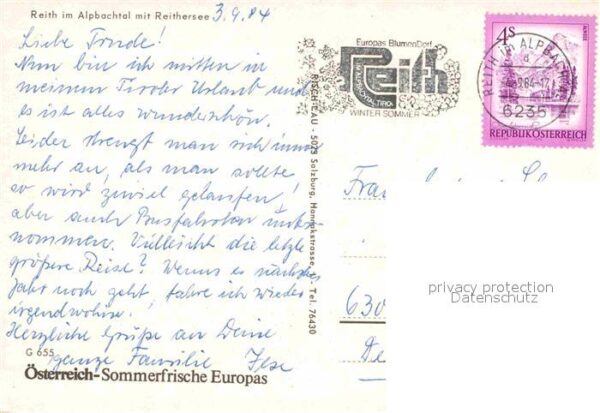 Reith im Alpbachtal mit Reithersee 3.9.84
Liebe Trude!
Nun bin ich mitten in
meinem Tiroler Urlaub und
es ist alles wunderschön.
Leider strengt man sich immer
mehr an, als man sollte!
so wird zuviel gelaufen,
aber auch Busfahrten
nommen. Vielleicht die letzte
größere Reise? Wenns es nächstes
Jahr noch geht, fahre ich wieder
irgendwohin.
Herzliche Grüße an Deine
ganze Familie
G 655
Österreich-Sommerfrische Europas
RISCH-LAU - 5023 Salzburg, Tel. 76430
Europas BlumenDorf
Reith
ALPBACHTAL TIROL
WINTER SOMMER
4S
REITH IM ALPBACHTAL
6235
REPUBLIK ÖSTERREICH
Frau
630
privacy protection
Datenschutz